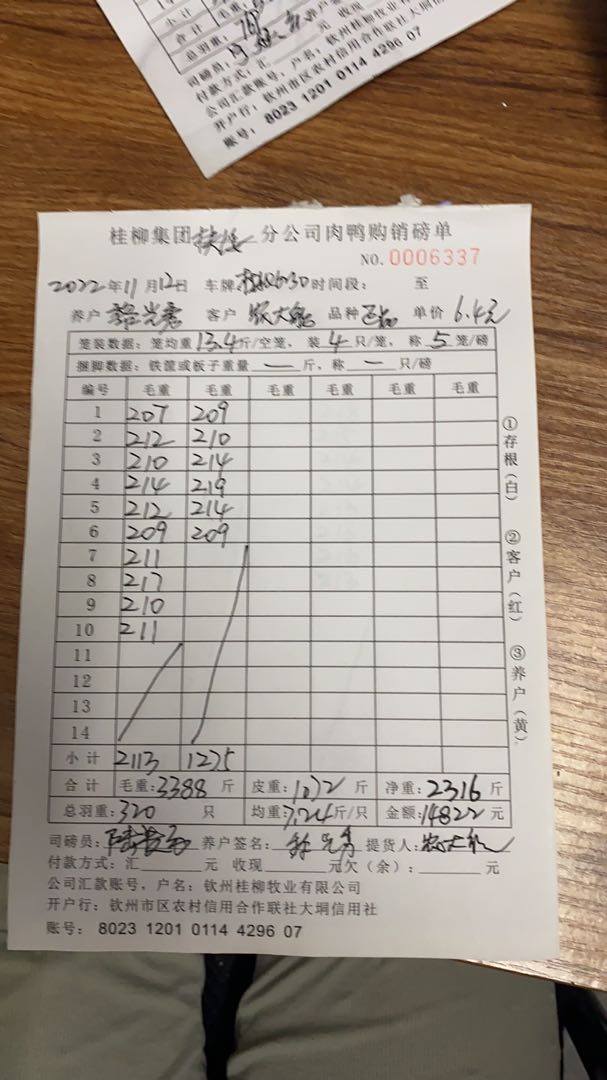 小计 毛重:
合计
总羽重:
司磅员:
付款方式: 汇 元 收现
公司汇款账号, 户名: 钦州桂柳牧业
开户行: 钦州市区农村信用合作联社大垌信用
账号: 8023 1201 0114 4296 07
桂柳集团 分公司肉鸭购销磅单
NO. 0006337
2022年11月12日 车牌 时间段: 至
养户 客户 品种 单价 6.4元
笼装数据: 笼均重13.4斤/空笼, 装4只/笼, 称5笼/磅
捆脚数据: 铁筐或板子重量 — 斤, 称 — 只/磅
编号 毛重 毛重 毛重 毛重 毛重 毛重
1 207 209
2 212 210
3 210 214
4 214 219
5 212 214
6 209 209
7 211
8 217
9 210
10 211
11
12
13
14
小计 2113 1275
合计 毛重:3388斤 皮重:1072斤 净重:2316斤
总羽重:320只 均重:7.24斤/只 金额:14822元
司磅员: 养户签名: 提货人:
付款方式: 汇 元 收现 元欠(余): 元
公司汇款账号, 户名: 钦州桂柳牧业有限公司
开户行: 钦州市区农村信用合作联社大垌信用社
账号: 8023 1201 0114 4296 07
①存根(白) ②客户(红) ③养户(黄)